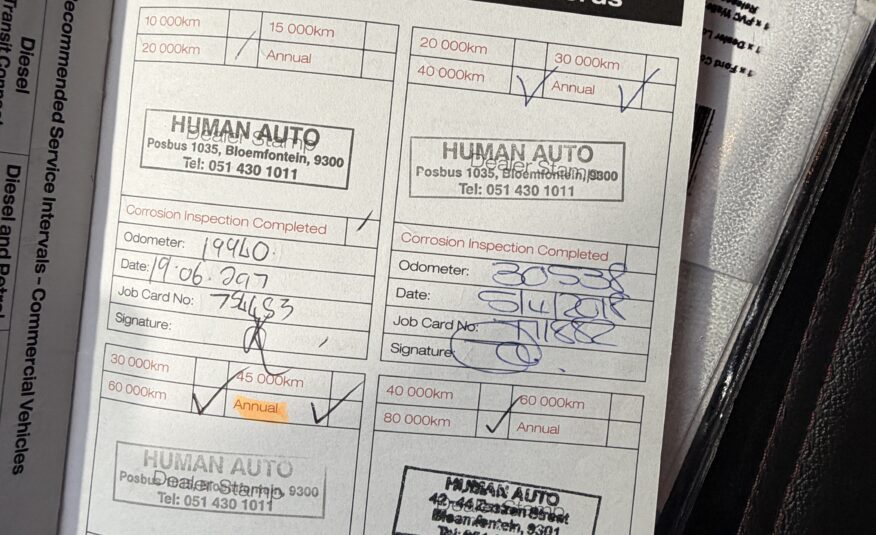 10 000km 15 000km
20 000km Annual
HUMAN AUTO
Dealer Stamp
Posbus 1035, Bloemfontein, 9300
Tel: 051 430 1011
Corrosion Inspection Completed
Odometer: 19940
Date: 19.06.
Job Card No:
Signature:
20 000km 30 000km
40 000km Annual
HUMAN AUTO
Dealer Stamp
Posbus 1035, Bloemfontein, 9300
Tel: 051 430 1011
Corrosion Inspection Completed
Odometer: 30538
Date: 5/4/2018
Job Card No:
Signature:
30 000km 45 000km
60 000km Annual
HUMAN AUTO
Dealer Stamp
Posbus 1035, Bloemfontein, 9300
Tel: 051 430 1011
40 000km 60 000km
80 000km Annual
HUMAN AUTO
Bloemfontein, 9301
Recommended Service Intervals – Commercial Vehicles
Diesel
Transit Connect
Diesel and Petrol